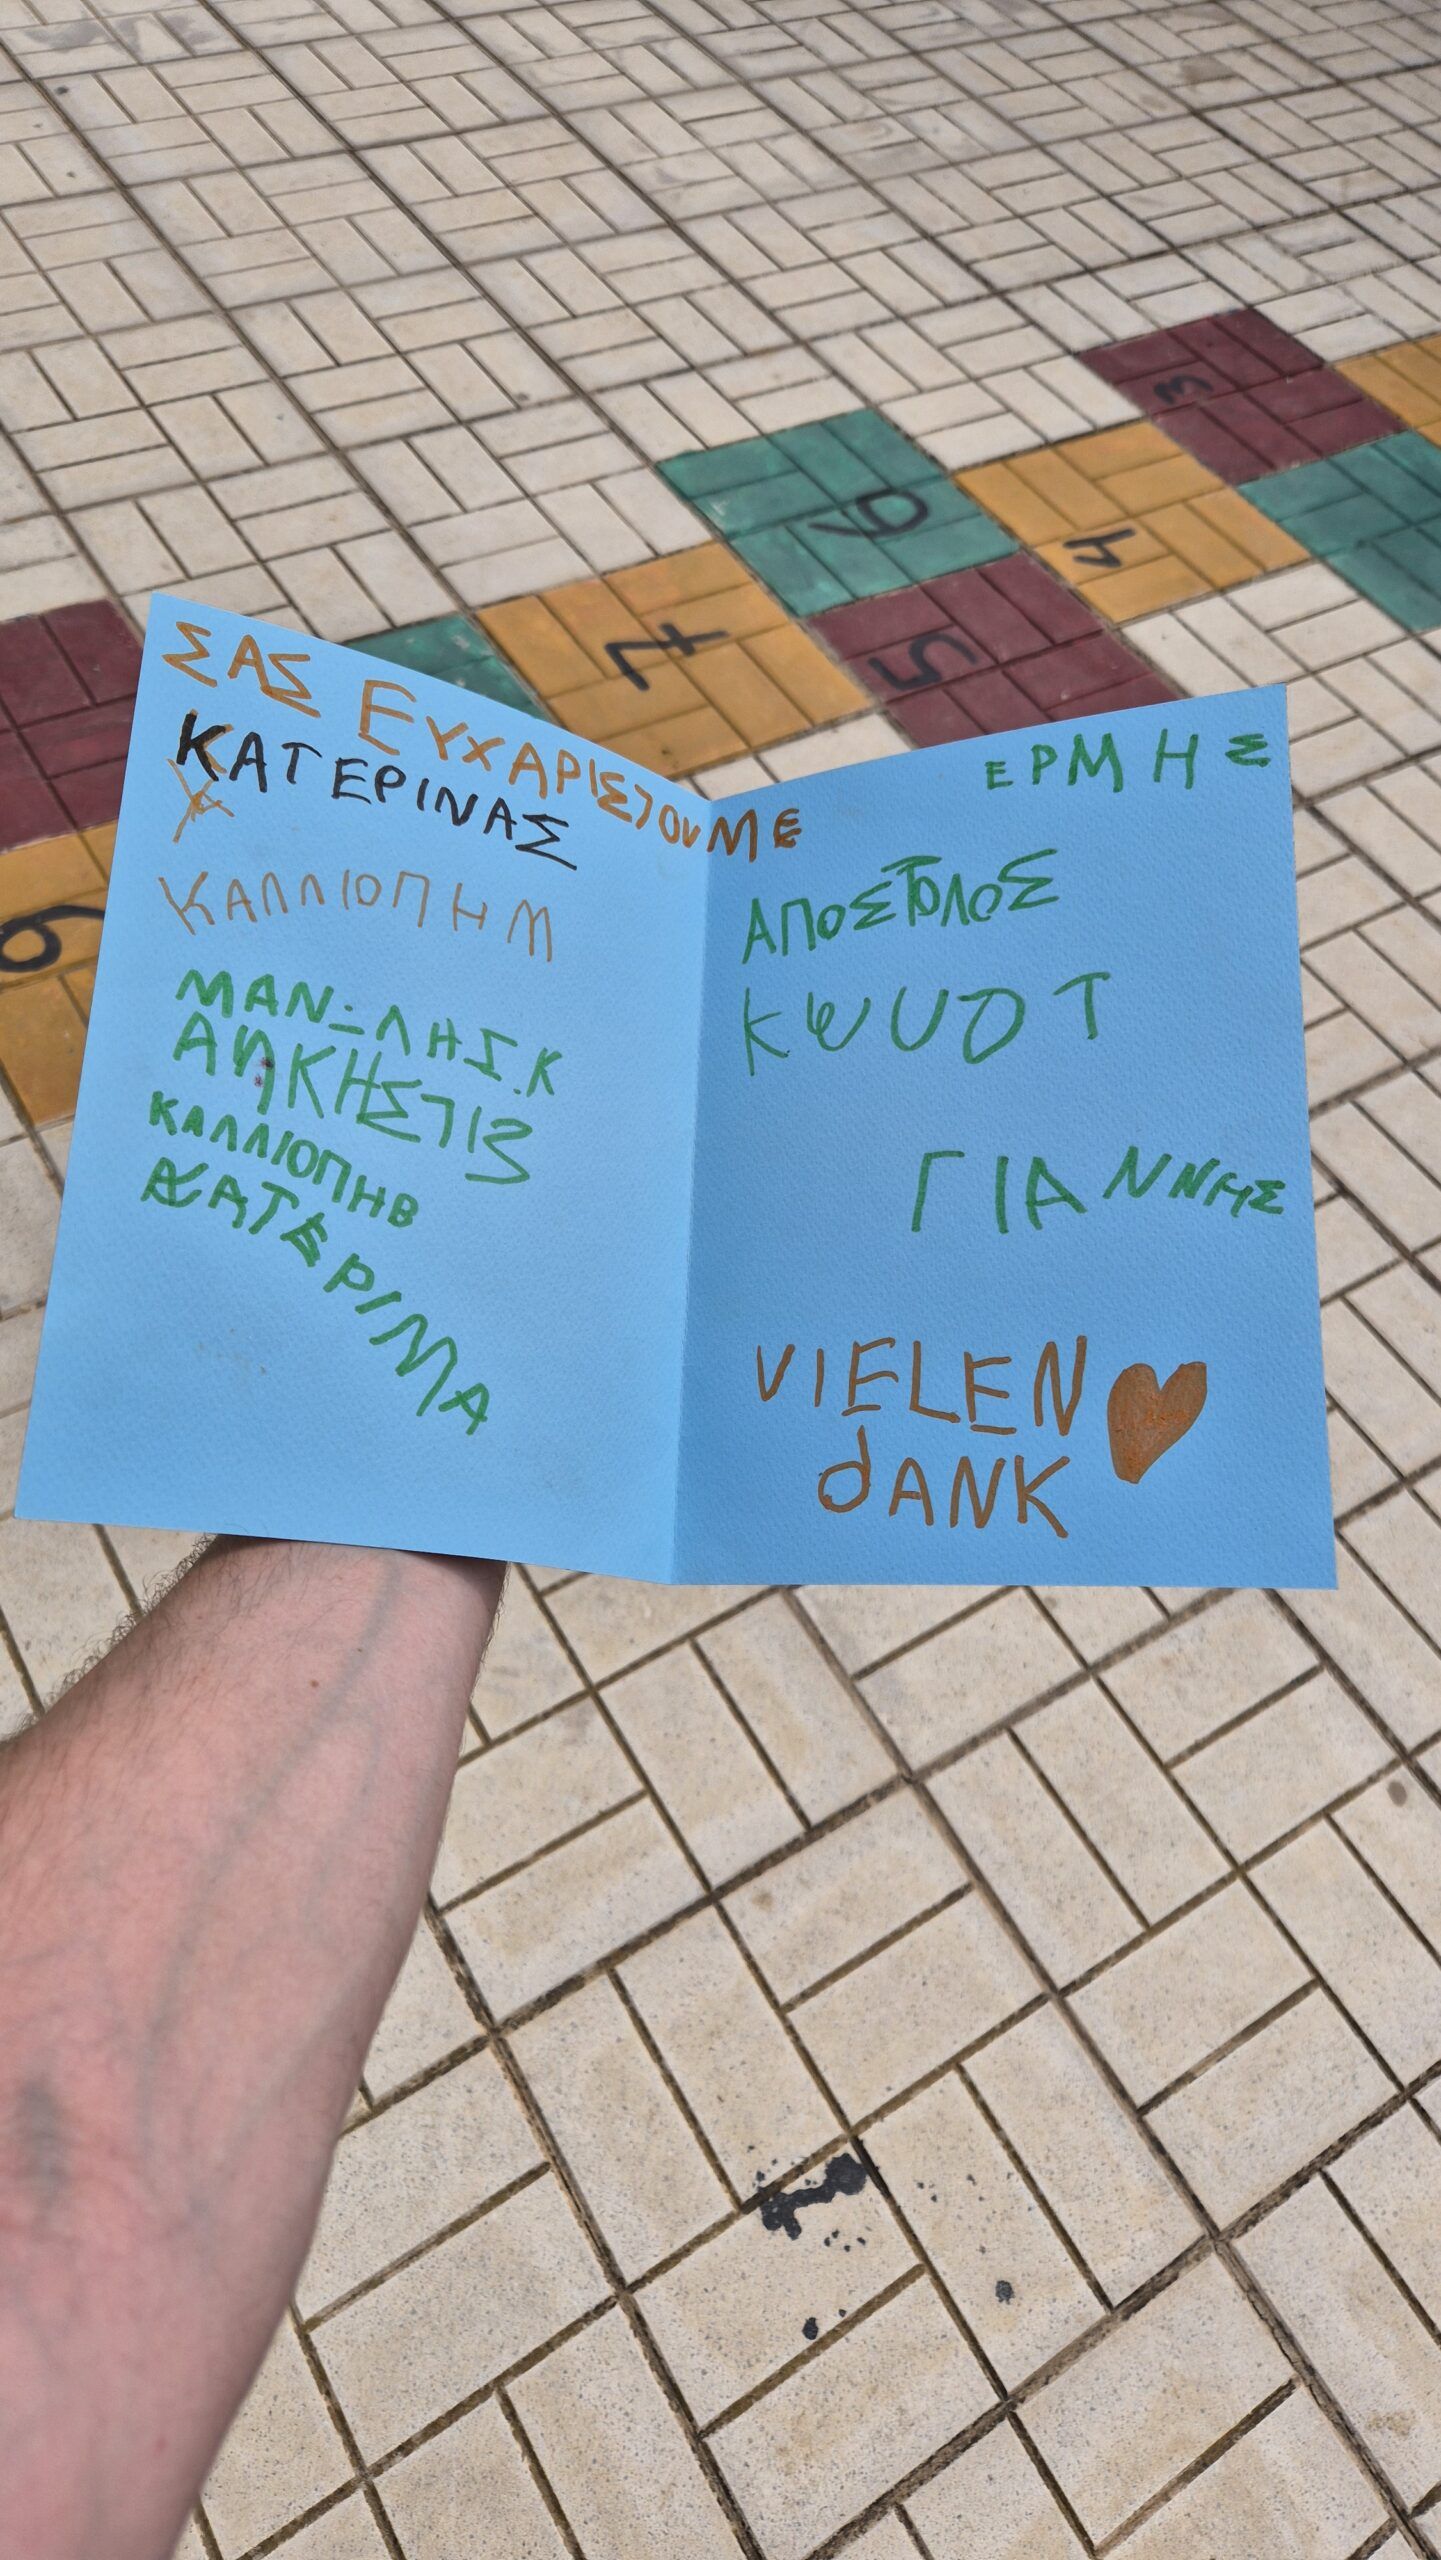 ΣΑΣ ΕΥΧΑΡΙΣΤΟΥΜΕ
ΚΑΤΕΡΙΝΑΣ
ΚΑΛΛΙΟΠΗ Μ
ΜΑΝ-ΛΗΣ.Κ
ΚΑΛΛΙΟΠΗ Β
ΚΑΤΕΡΙΜΑ
ΕΡΜΗΣ
ΑΠΟΣΤΟΛΟΣ
ΓΙΑΝΝΗΣ
VIELEN
dANK
3
4
6
5
7
9